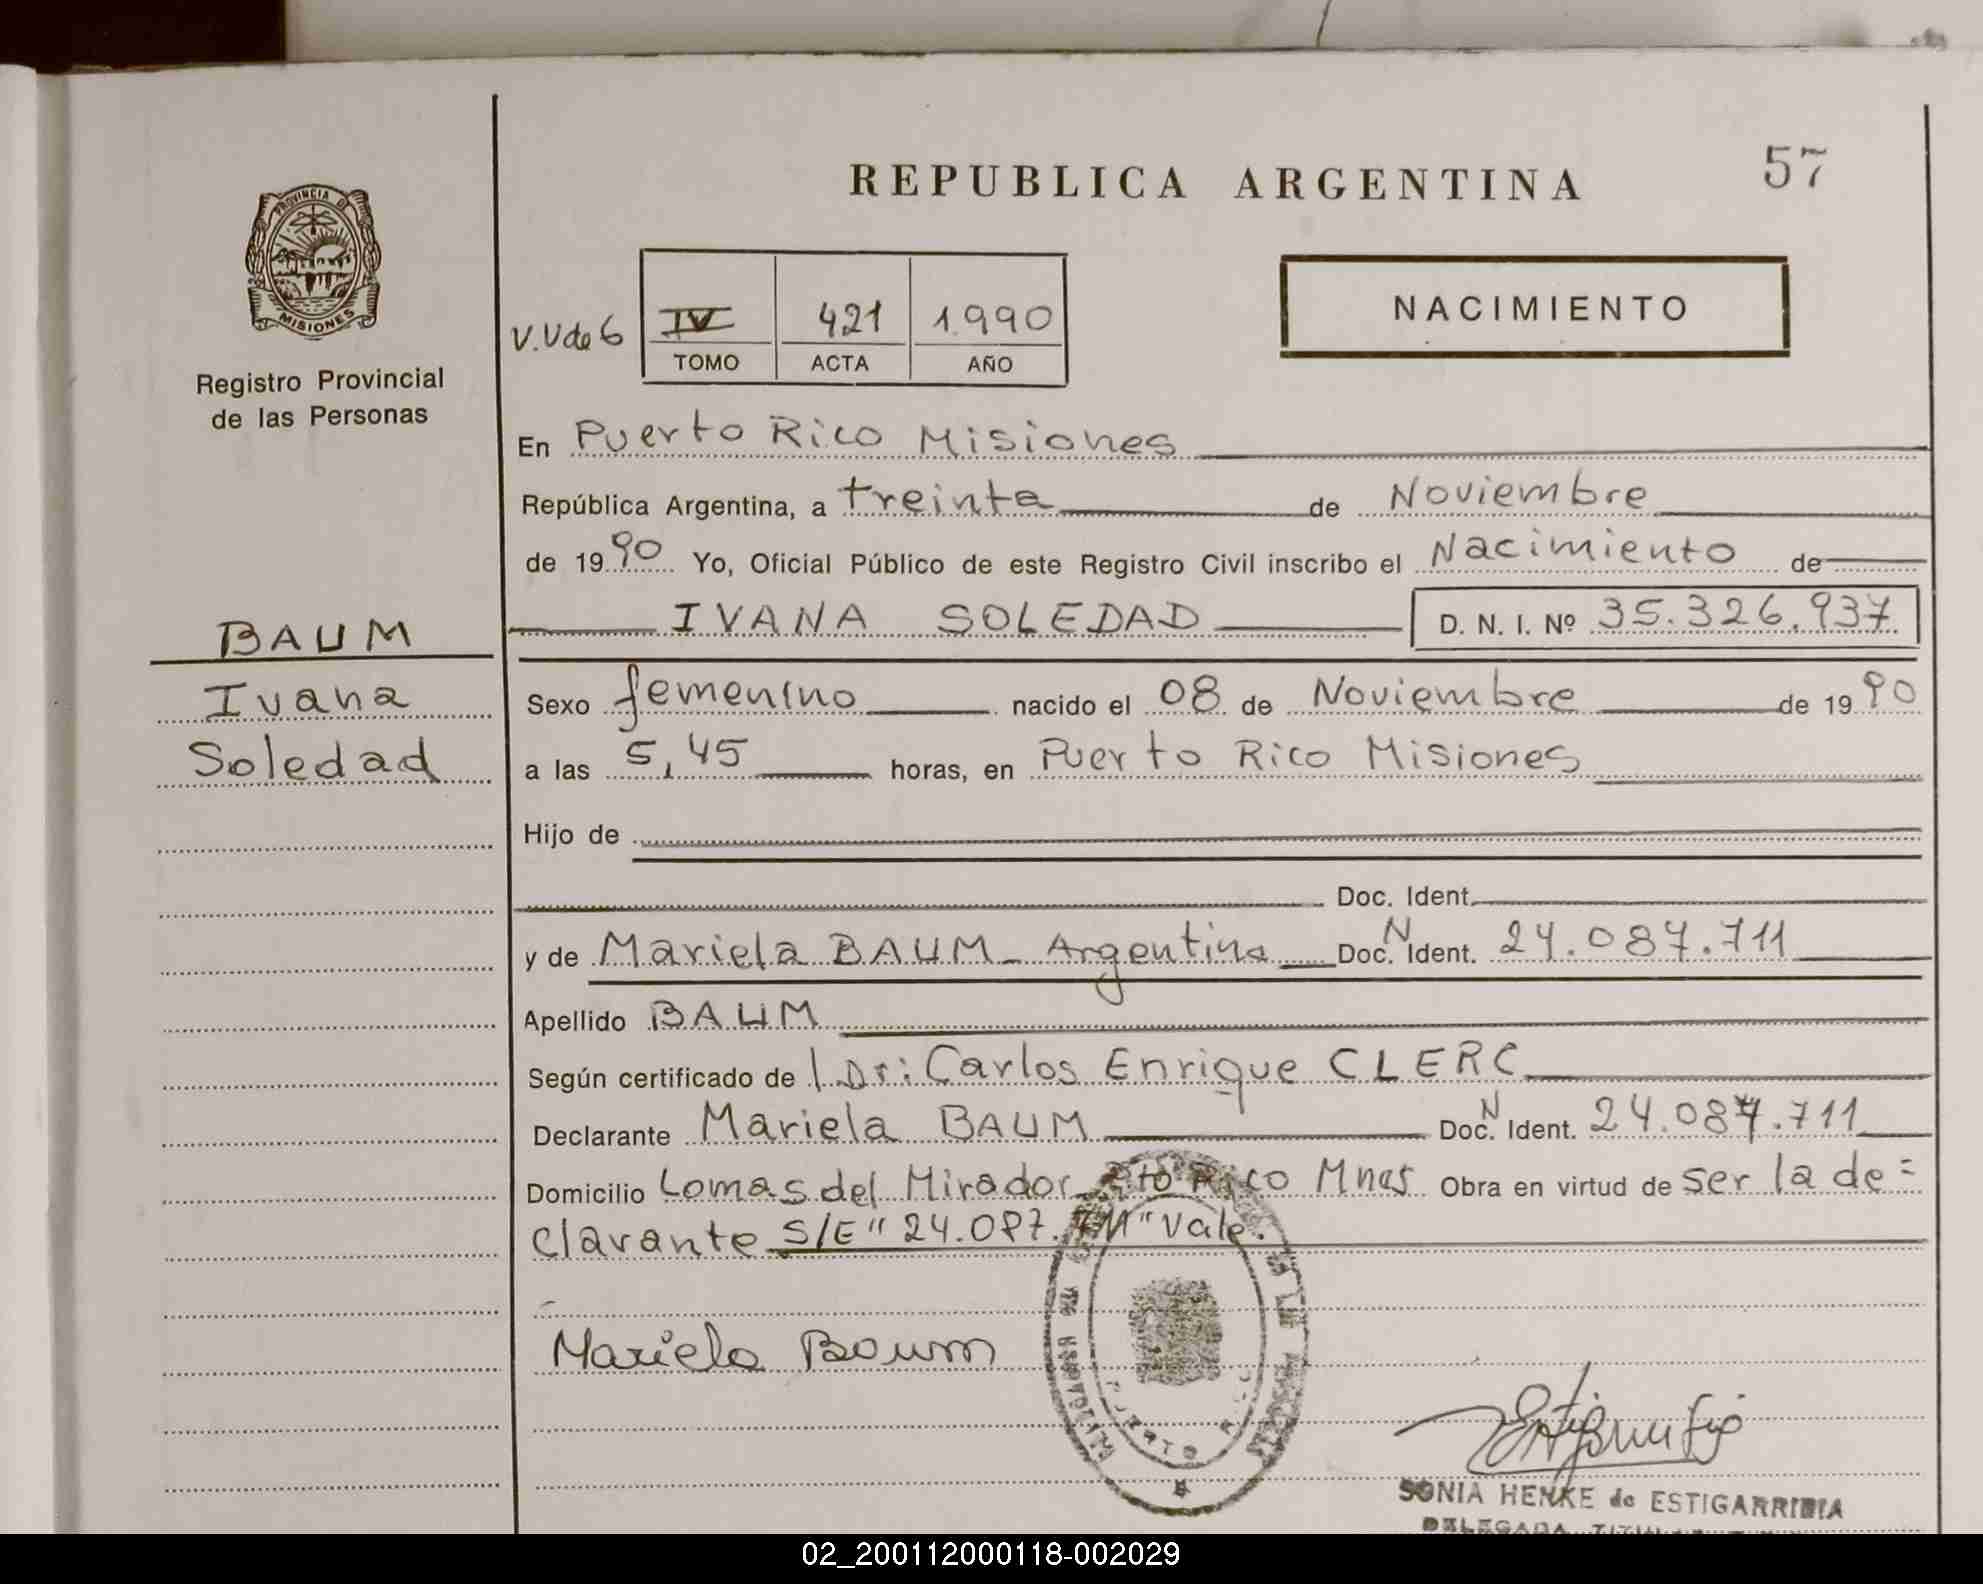 REPUBLICA ARGENTINA
57
PROVINCIA DE
MISIONES
Registro Provincial
de las Personas
V.Ude6
IV 421 1.990
TOMO ACTA AÑO
NACIMIENTO
En Puerto Rico Misiones
República Argentina, a treinta de Noviembre
de 1990 Yo, Oficial Público de este Registro Civil inscribo el Nacimiento de
IVANA SOLEDAD D. N. I. Nº 35.326.937
BAUM
Ivana
Soledad
Sexo femenino nacido el 08 de Noviembre de 1990
a las 5,45 horas, en Puerto Rico Misiones
Hijo de
Doc. Ident.
y de Mariela BAUM - Argentina Doc. N Ident. 24.087.711
Apellido BAUM
Según certificado de l Dr: Carlos Enrique CLERC
Declarante Mariela BAUM Doc. N Ident. 24.087.711
Domicilio Lomas del Mirador Pto Rico Mnes Obra en virtud de ser la de=
clarante S/E" 24.087.711" Vale.
Mariela Baum
PUERTO
SONIA HENKE de ESTIGARRIBIA
DELEGADA
02_200112000118-002029